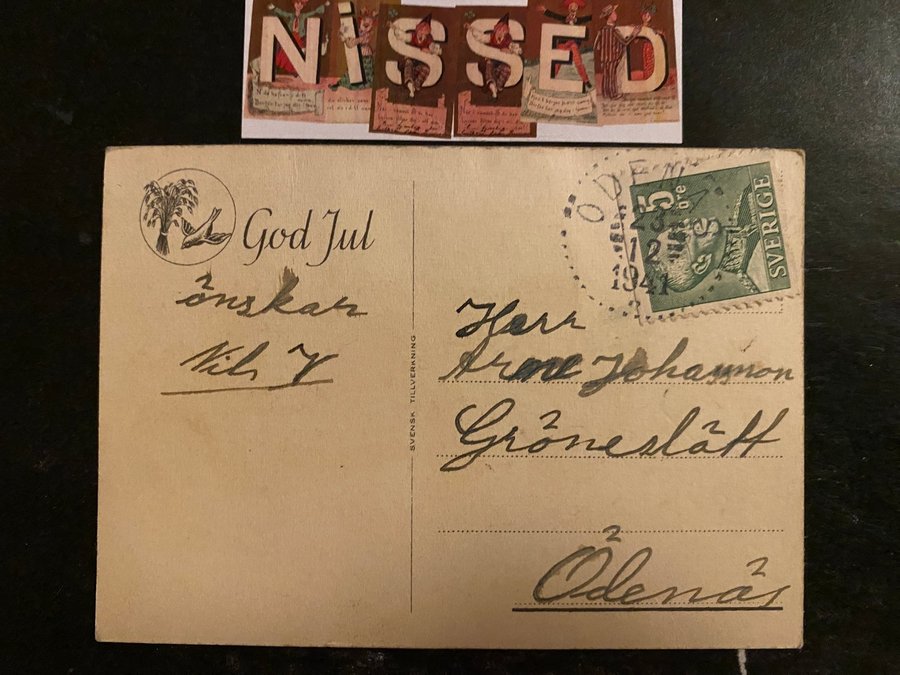 NiSSED
God Jul
önskar
Nils V
SVENSK TILLVERKNING
ÖDEN
23
12
1941
5
öre
SVERIGE
Herr
Arne Johannson
Gröneslätt
Ödenäs